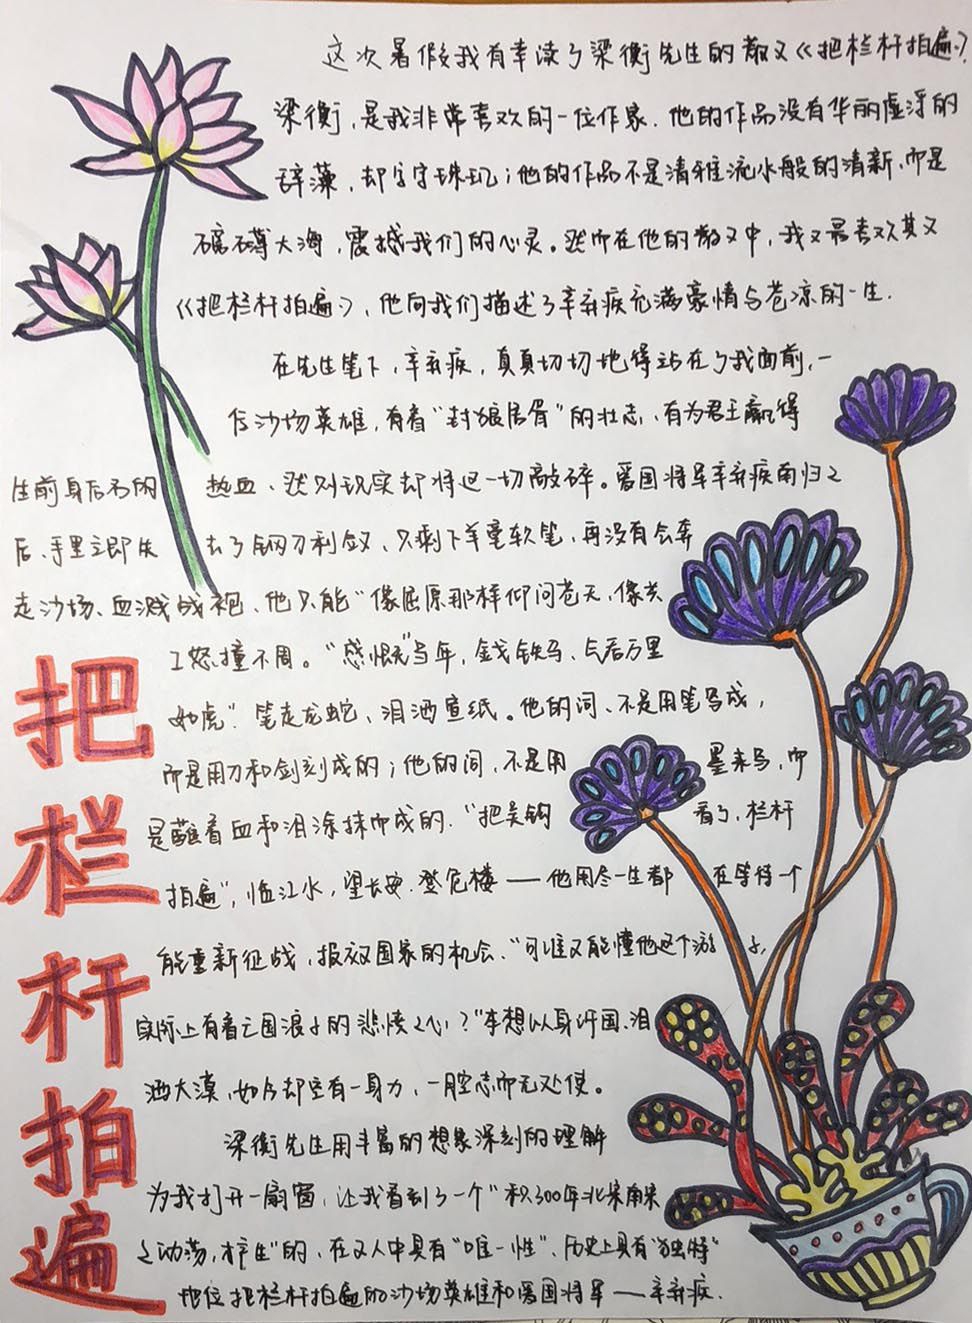 这次暑假我有幸读了梁衡先生的散文《把栏杆拍遍》
梁衡，是我非常喜欢的一位作家，他的作品没有华丽虚浮的
辞藻，却字字珠玑；他的作品不是清雅流水般的清新，而是
磅礴大海，震撼我们的心灵。然而在他的散文中，我又最喜欢其文
《把栏杆拍遍》，他向我们描述了辛弃疾充满豪情与苍凉的一生.
在先生笔下，辛弃疾，真真切切地得站在了我面前，一
位沙场英雄，有着“封狼居胥”的壮志、有为君王赢得
生前身后名的热血、然则现实却将这一切敲碎。爱国将军辛弃疾南归之
后、手里立即失去了钢刀利剑，只剩下羊毫软笔，再没有会奔
走沙场、血溅战袍、他只能“像屈原那样仰问苍天，像共
工怒撞不周。“感慨”当年，金戈铁马、气吞万里
如虎”笔走龙蛇、泪洒宣纸。他的词、不是用笔写成，
而是用刀和剑刻成的；他的词，不是用墨来写，而
是蘸着血和泪涂抹而成的.“把吴钩看了，栏杆
拍遍”，临江水，望长安，登危楼——他用尽一生都在等待一个
能重新征战，报效国家的机会、“可谁又能懂他这个游子，
实际上有着亡国浪子的悲愤之心？”本想以身许国、泪
洒大漠，如今却空有一身力，一腔志而无处使。
梁衡先生用丰富的想象深刻的理解
为我打开一扇窗，让我看到了一个“积300年北宋南宋
之动荡，产生”的，在文人中具有“唯一性”、历史上具有“独特”
地位把栏杆拍遍的沙场英雄和爱国将军——辛弃疾.
把栏杆拍遍